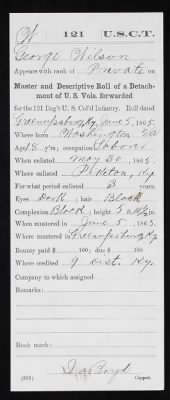 W 121 U.S.C.T.
George Wilson
Appears with rank of Private on
Muster and Descriptive Roll of a Detach-
ment of U. S. Vols. forwarded
for the 121 Reg't U. S. Col'd Infantry. Roll dated
Greenupsburg, Ky. June 5, 1865.
Where born Washington Va
Age 18 y'rs; occupation Laborer
When enlisted May 30, 1865.
Where enlisted Piketon, Ky.
For what period enlisted 3 years.
Eyes Dark; hair Black
Complexion Black; height 5 ft. in.
When mustered in June 5, 1865.
Where mustered in Greenupsburg Ky.
Bounty paid $ 100; due $ 100
Where credited 9 Dist. Ky.
Company to which assigned
Remarks:
Book mark:
Boyd
Copyist.